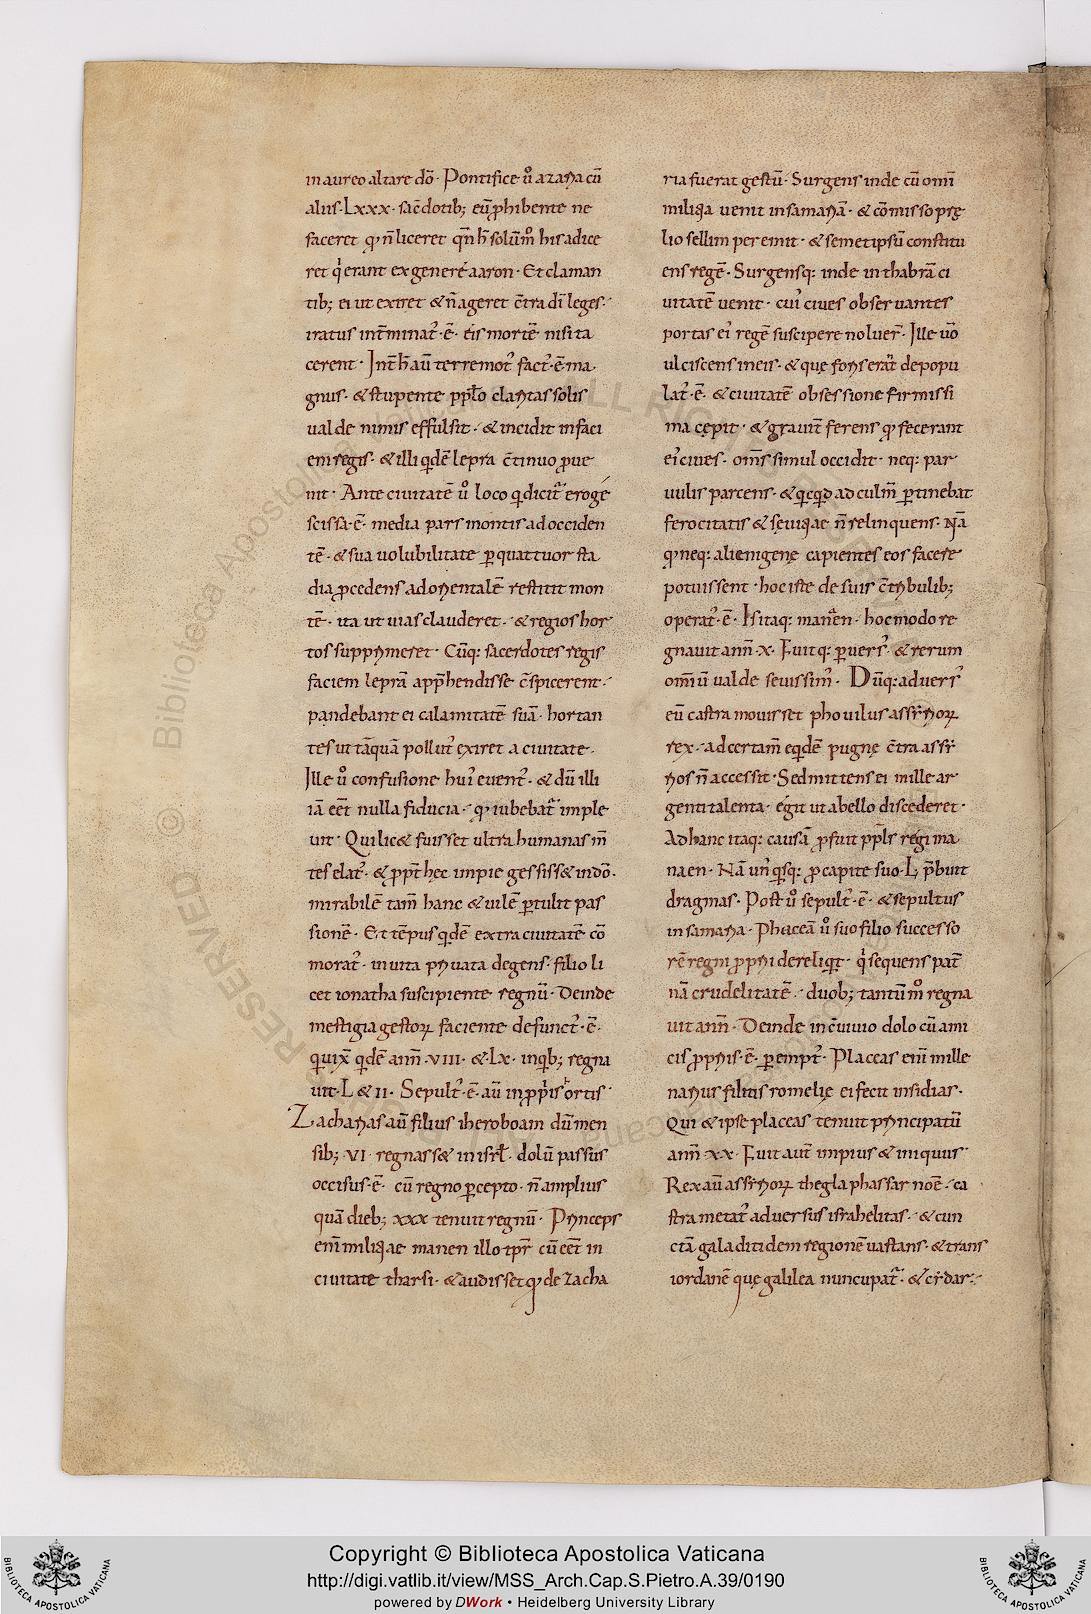 in aureo altare dō· Pontifice u̾o azaria cū
aliis·Lxxx· sac̄dotib; eū ꝓhibente ne
faceret qͥ n̄ liceret qn̄ h̄ solūm̊ his adice
ret qͥ erant ex genere aaron· Et claman
tib; ei ut exiret & n̄ ageret c̄tra dī leges·
iratus int̄minat᷒·ē· eis mortē nisi ta
cerent· Int̄ h̄ aū terremot᷒ fact᷒·ē· ma
gnus· & stupente pp̄lo claritas solis
ualde nimis effulsit· & incidit in faci
em regis· & illi qͥdē lepra c̄tinuo ꝓue
nit· Ante ciuitatē u̾o loco qͥ dicit᷒ eroge
scissa·ē· media pars montis ad occiden
tē· & sua uolubilitate ꝑ quattuor sta
dia ꝓcedens ad orientalē restitit mon
tē· ita ut uias clauderet· & regios hor
tos supprimeret· Cūq: sacerdotes regis
faciem leprā app̄hendisse c̄spicerent·
pandebant ei calamitatē suā· hortan
tes ut tāquā pollut᷒ exiret a ciuitate·
Ille u̾o confusione hui᷒ euent᷒· & dū illi
iā eēt nulla fiducia· qͥ iubebat᷒ imple
uit· Qui lic& fuisset ultra humanas m̄
tes elat᷒· & ꝓpt̄ hęc impie gessiss& in dō·
mirabilē tam̄ hanc & uilē ꝑtulit pas
sionē· Et tēpus qͥdē extra ciuitatē cō
morat᷒· in uita priuata degens· filio li
cet ionatha suscipiente regnū· Deinde
mestigia gestoꝝ faciente defunct᷒·ē·
qͥ uix̄ qͥdē ann̄·VIII·&·Lx· inqͥb; regna
uit·L & II· Sepult᷒·ē· aū in ꝓpͥis ortis·
Zacharias aū filius iheroboam dū men
sib; VI· regnass& in isrl̄· dolū passus
occisus·ē· cū regno ꝑcepto· n̄ amplius
quā dieb; xxx tenuit regnū· Princeps
enī militiae manen illo tp̄r cū eēt in
ciuitate tharsi· & audisset qͥ de Zacha
ria fuerat gestū· Surgens inde cū omī
militia uenit in samariā· & cōmisso prę
lio sellim peremit· & semetipsū constitu
ens regē· Surgensq: inde in thabrā ci
uitatē uenit· cui᷒ ciues obseruantes
portas ei᷒ regē suscipere noluer̄· Ille uō
ulciscens in eis· & quę foris erāt depopu
lat᷒·ē· & ciuitatē obsessione firmissi
ma cępit· & grauit̄ ferens qͥ fecerant
ei᷒ ciues· om̄s simul occidit· neq: par
uulis parcens· & qͥcqͥd ad culm̄ ꝑtinebat
ferocitatis & seuitiae n̄ relinquens· Nā
qͥ neq: alienigenę capientes eos facere
potuissent· hoc iste de suis c̄tribulib;
operat᷒·ē· Is itaq: manaen· hoc modo re
gnauit ann̄·x· Fuitq: ꝑuers᷒· & rerum
om̄iū ualde seuissim᷒· Dūq: aduers᷒
eū castra mouisset phouilus assirioꝝ
rex· ad certam̄ eqͥdē pugnę c̄tra assi
rios n̄ accessit· Sed mittens ei mille ar
genti talenta· egit ut a bello discederet·
Ad hanc itaq: causā ꝓfuit pp̄ls regi ma
naen· Nā un᷒ qͥsq: ꝓ capite suo·L· p̄buit
dragmas· Post u̾o sepult᷒·ē· & sepultus
in samaria· Phaceā u̾o suo filio successo
rē regni ꝓprii dereliqͥt· qͥ sequens pat̄
nā crudelitatē· duob; tantū m̊ regna
uit ann̄· Deinde in c̄uiuio dolo cū ami
cis ꝓpriis·ē· ꝑempt᷒· Placeas enī mille
narius filius romelię ei fecit insidias·
Qui & ipse placeas tenuit principatū
ann̄·xx· Fuit aut̄ impius & iniquus·
Rex aū assirioꝝ theglaphassar noē· ca
stra metat᷒ aduersus israhelitas· & cun
ctā galaditidem regionē uastans· & trans
iordanē quę galilea nuncupat᷒· & cidar·
Copyright © Biblioteca Apostolica Vaticana
http://digi.vatlib.it/view/MSS_Arch.Cap.S.Pietro.A.39/0190
powered by DWork • Heidelberg University Library